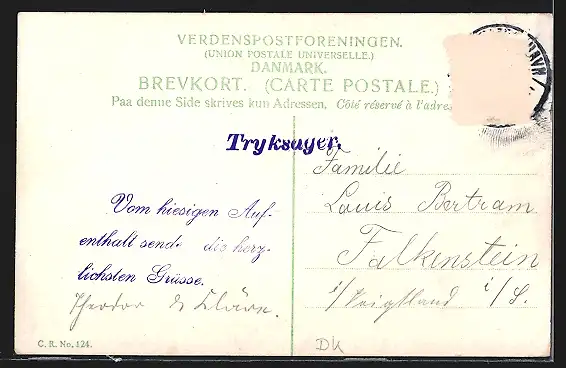 VERDENSPOSTFORENINGEN.
(UNION POSTALE UNIVERSELLE.)
DANMARK.
BREVKORT. (CARTE POSTALE.)
Paa denne Side skrives kun Adressen. Côté réservé à l'adres
Tryksager.
Familie
Louis Bertram
Falkenstein
i/Voigtland i/S.
Vom hiesigen Auf-
enthalt sende die herz-
lichsten Grüsse.
Theodor & Kläre.
C. R. No. 124.
DK